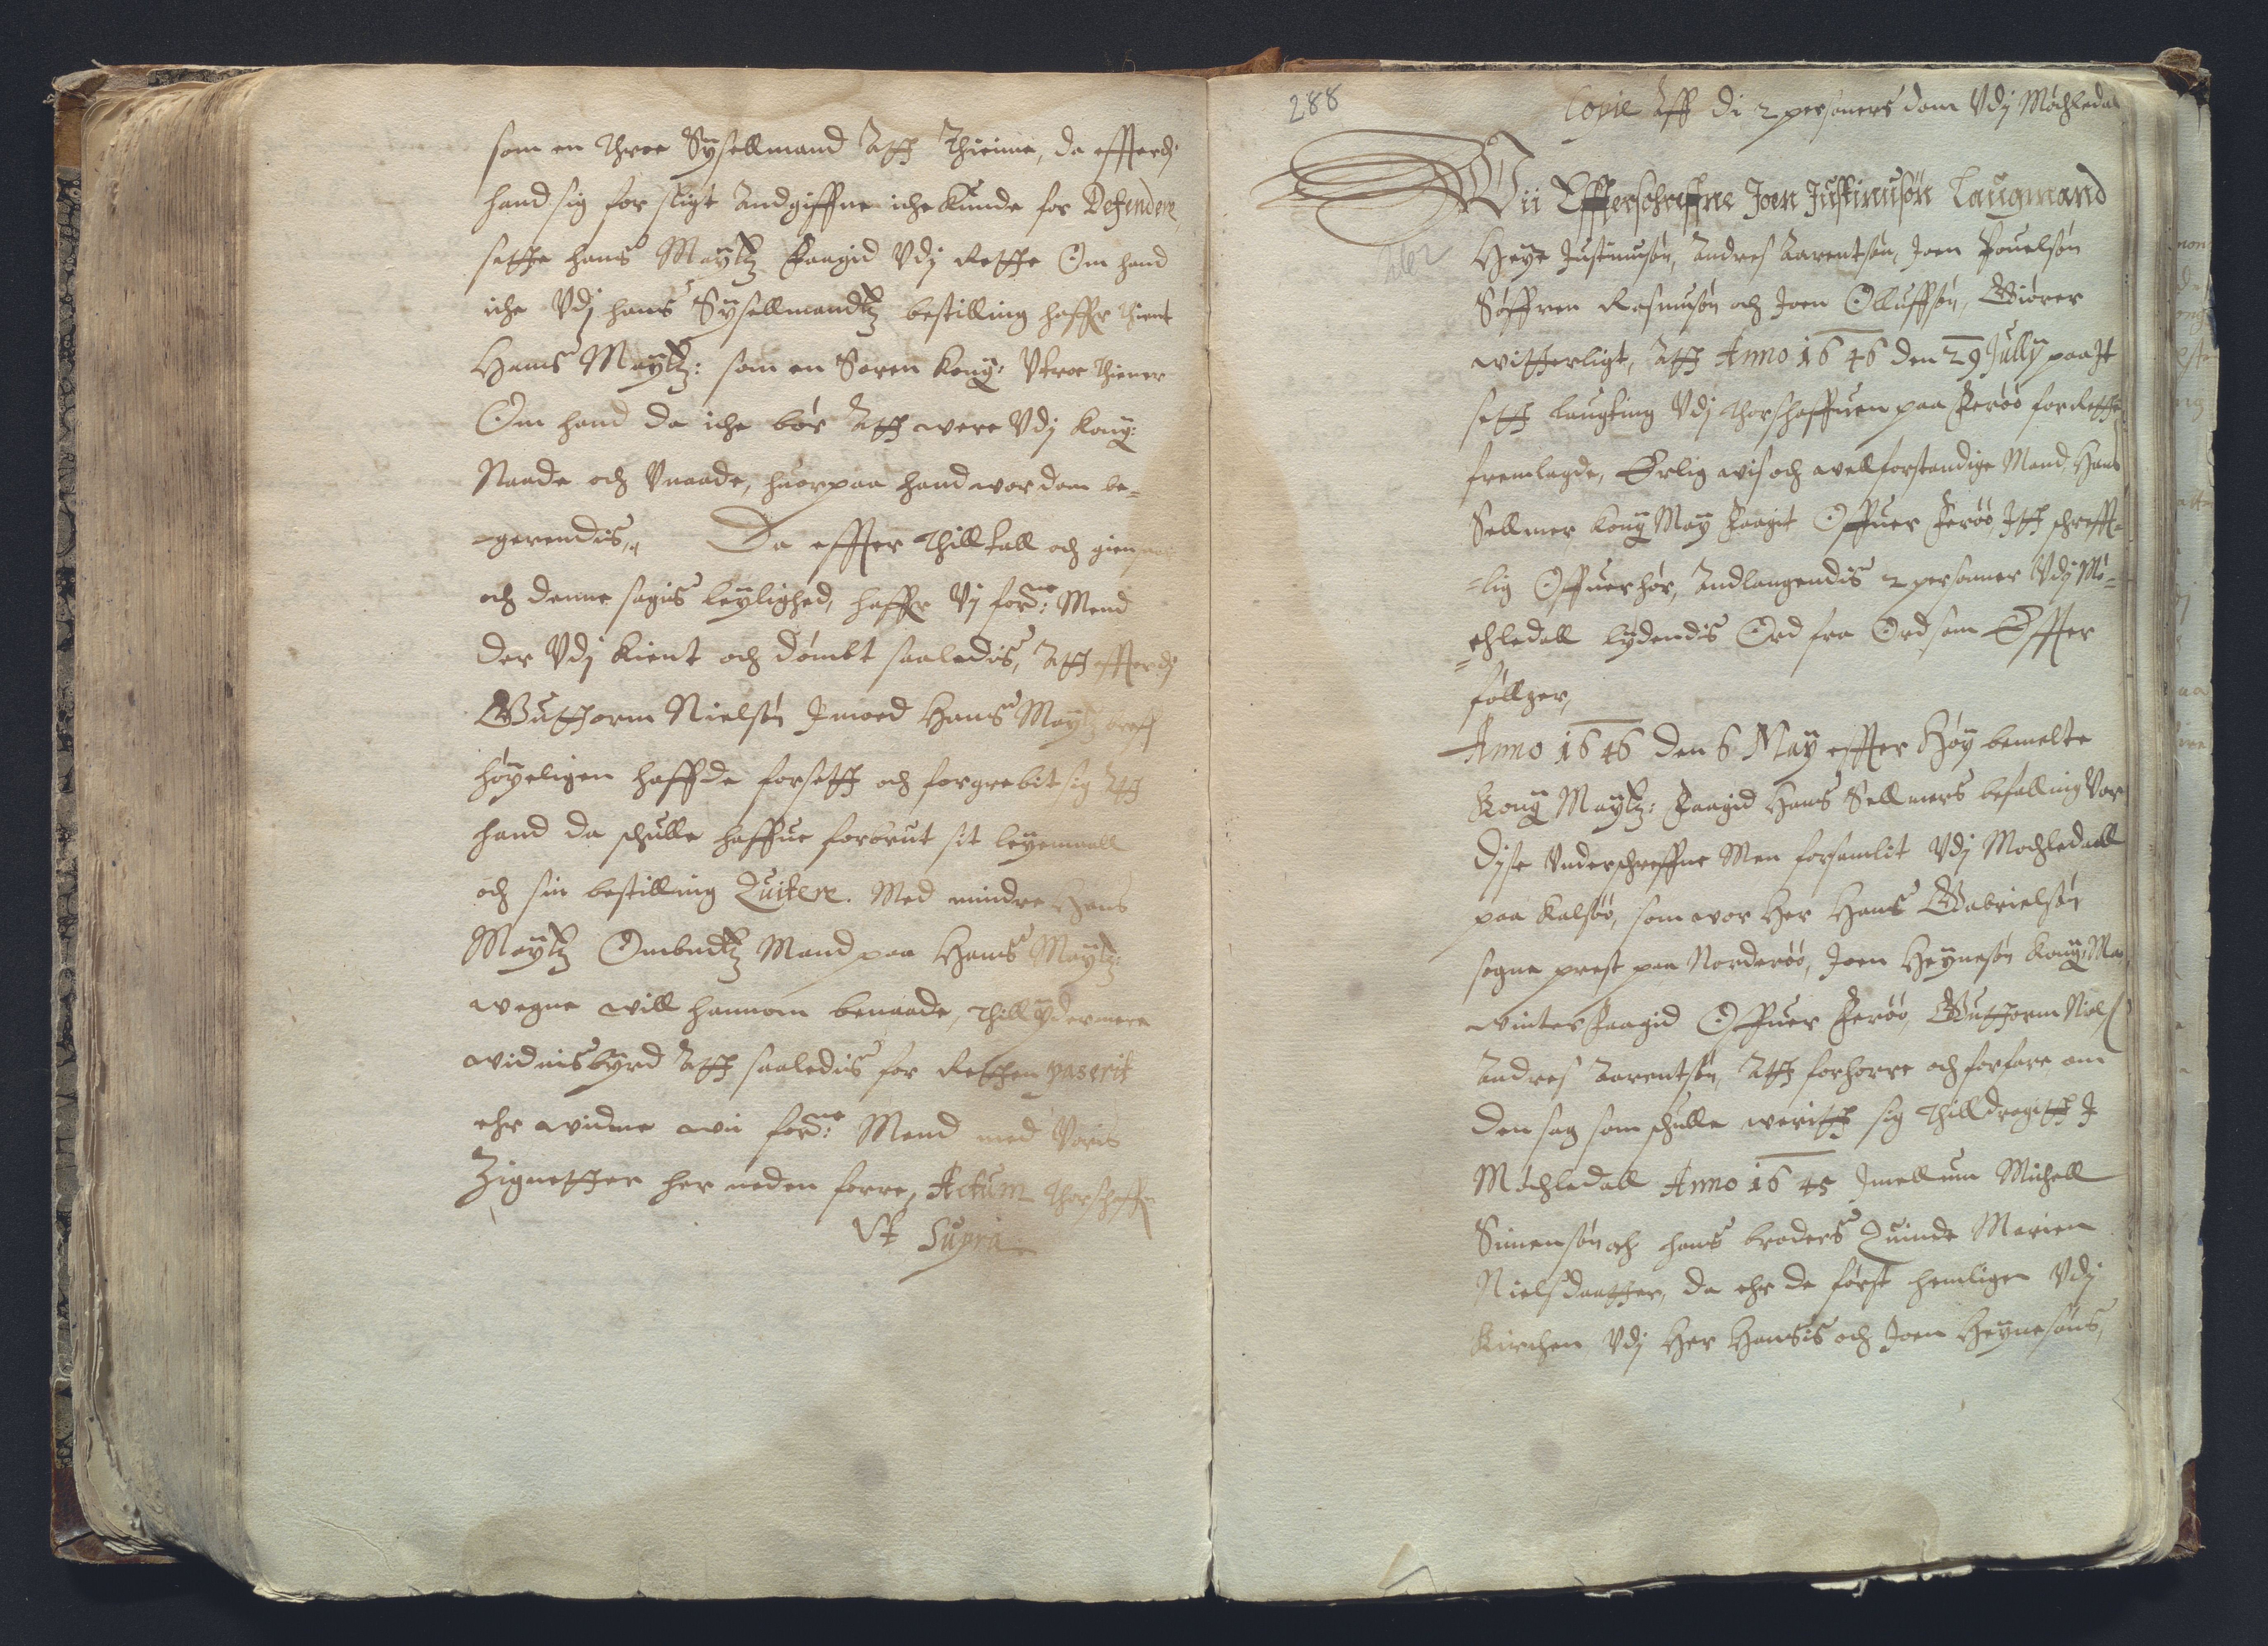 som en throe Sysellmand Att thiene, da effterdj
hand sig for sligt Andgiffne iche kunde for Defendere,
sette hans Maytz faagid Vdj Rette Om hand
iche Vdj hans Sysellmandtz bestilling haffr thient
Hans Maytz: som en Soren Kong: Vtroe thiener
Om hand da iche bör Att were Vdj Kong:
Naade och Vnaade, huorpaa hand wor dom be=
=gerendis,, Da effter thilltall och giensuar
och denne sagis leylighed, haffr Vj ford:ne Mend
der Vdj kient och dömbt saaledis, Att effterdj
Guttorm Nielsön Jmoed Hans Maytz
höyeligen haffde forsett och forgrebit sig Att
hand da schulle haffue forbrut sit leyemaall
och sin bestilling Quitere. Med mindre Hans
Maytz Ombudtz Mand paa Hans Maytz:
wegne will hannom benaade, thill ydermere
widnisbyrd Att saaledis for Retten paserit
ehr widne wii ford:ne Mend med Voris
Zignetter her neden forre, Actum Thorshaffn
Vt Supra
288
Copie Aff di 2 personers dom Vdj Möchledal
Wii Effterschreffne Joen Justinusön Laugmand
Heye Justinusön, Andres Aarentsön, Joen Pouelsön
Söffren Rasmusön och Joen Olluffsön, Giörer
witterligt, Att Anno 1646 den 29 Jully paa It
sett laugting Vdj Thorshaffuen paa Feröö for Rette
fremlagde, Erlig wis och wellforstandige Mand Hans
Sellmer Kong May faagit Offuer Feröö Itt schrefft=
=lig Offuerhör, Andlangendis 2 personner Vdj Mö=
=chledall lydendis Ord fra Ord som Effter
föllger,
Anno 1646 den 6 May effter Höy bemelte
Kong Maytz: faagid Hans Sellmers befalling Vor
dise Vnderschreffne Men forsamlit Vdj Mochledall
paa Kalsöö, som wor Her Hans Gabrielsön
sogne prest paa Norderöö, Joen Heynesön Kong: May
winterfaagid Offuer Feröö, Guttorm Niels
Andres Aarentsön, Att forhorre och forfare om
den sag som schulle weritt sig thilldragitt I
Möchledall Anno 1645 Jmellum Michell
Simensön och hans broders Quinde Marien
Nielsdaatter, da ehr de först hemligen Vdj
Kirchen Vdj Her Hansis och Joen Heynesöns,